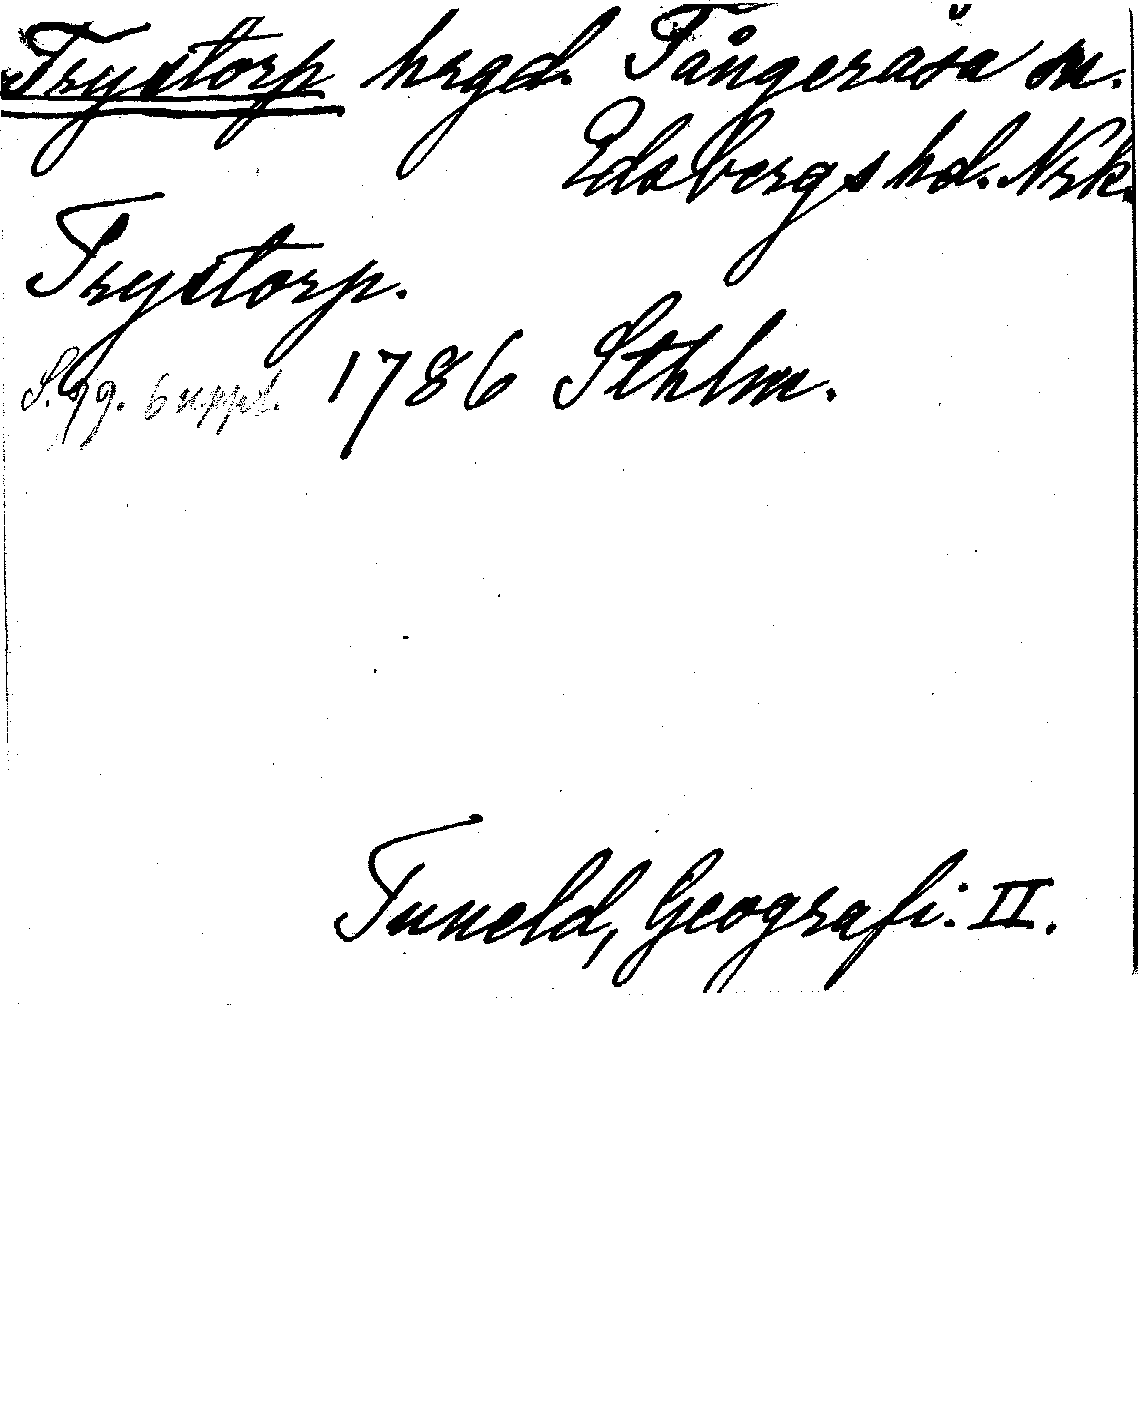 Trystorp hrgd. Tångeråsa sn.
Edsbergs hd. Nrk.
Trystorp.
S. 99. 6 uppl. 1786 Sthlm.
Tuneld, Geografi: II.